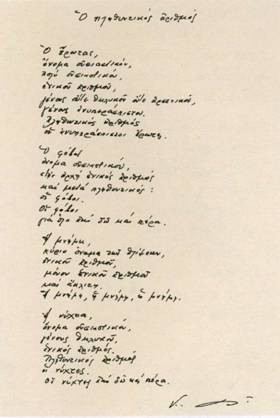 Ὁ πληθυντικός ἀριθμός
Ὁ ἔρωτας,
ὄνομα οὐσιαστικόν,
πολύ οὐσιαστικόν,
ἑνικοῦ ἀριθμοῦ,
γένους οὔτε θηλυκοῦ οὔτε ἀρσενικοῦ,
γένους ἀνυπεράσπιστου.
Πληθυντικός ἀριθμός
οἱ ἀνυπεράσπιστοι ἔρωτες.
Ὁ φόβος
ὄνομα οὐσιαστικόν,
στήν ἀρχή ἑνικός ἀριθμός
καί μετά πληθυντικός:
οἱ φόβοι.
Οἱ φόβοι
γιά ὅλα ἀπό δῶ καί πέρα.
Ἡ μνήμη,
κύριο ὄνομα τῶν θλίψεων,
ἑνικοῦ ἀριθμοῦ,
μόνον ἑνικοῦ ἀριθμοῦ
καί ἄκλιτη.
Ἡ μνήμη, ἡ μνήμη, ἡ μνήμη.
Ἡ νύχτα,
ὄνομα οὐσιαστικόν,
γένους θηλυκοῦ,
ἑνικός ἀριθμός.
Πληθυντικός ἀριθμός
οἱ νύχτες.
Οἱ νύχτες ἀπό δῶ καί πέρα.